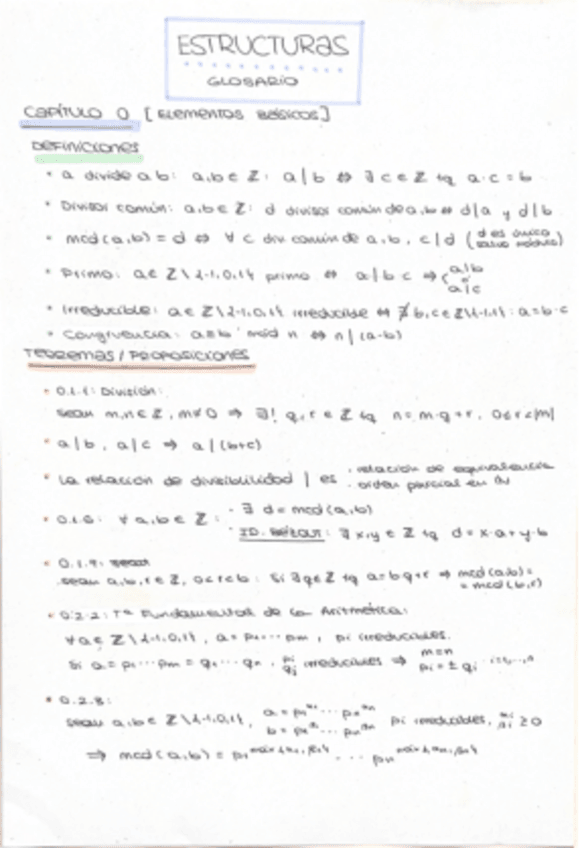 ESTRUCTURAS
GLOSARIO
CAPÍTULO 0 [ELEMENTOS BÁSICOS]
DEFINICIONES
• a divide a b: a,b ∈ ℤ: a|b ⇔ ∃ c ∈ ℤ tq a·c = b
• Divisor común: a,b ∈ ℤ: d divisor común de a,b ⇔ d|a y d|b
• mcd(a,b) = d ⇔ ∀ c div común de a,b, c|d (d es único
• Primo: a ∈ ℤ\{-1,0,1} primo ⇔ a|b·c ⇒ a|b o a|c
• Irreducible: a ∈ ℤ\{-1,0,1} irreducible ⇔ ∄ b,c ∈ ℤ\{-1,1}: a=b·c
• Congruencia: a≡b mód n ⇔ n|(a-b)
TEOREMAS/PROPOSICIONES
• 0.1.1: División:
sean m,n ∈ ℤ, m≠0 ⇒ ∃! q,r ∈ ℤ tq n = m·q+r, 0≤r<|m|
• a|b, a|c ⇒ a|(b+c)
• La relación de divisibilidad | es · relación de equivalencia
· orden parcial en
• 0.1.6: ∀ a,b ∈ ℤ: · ∃ d = mcd(a,b)
· ID. BÉZOUT: ∃ x,y ∈ ℤ tq d = x·a+y·b
• 0.1.9:
sean a,b,r ∈ ℤ, 0≤r<b: Si ∃ q ∈ ℤ tq a=bq+r ⇒ mcd(a,b) =
= mcd(b,r)
• 0.2.2: Tª Fundamental de la Aritmética:
∀ a ∈ ℤ\{-1,0,1}, a = p₁···pm, pi irreducibles.
Si a = p₁···pm = q₁···qn, pi qj irreducibles ⇒ m=n
pi = ± qi · i=1,...,n
• 0.2.8:
sean a,b ∈ ℤ\{-1,0,1}, a = p₁ ··· pn
b = p₁ ··· pn pi irreducibles, ≥0
⇒ mcd(a,b) = p₁ ··· pn